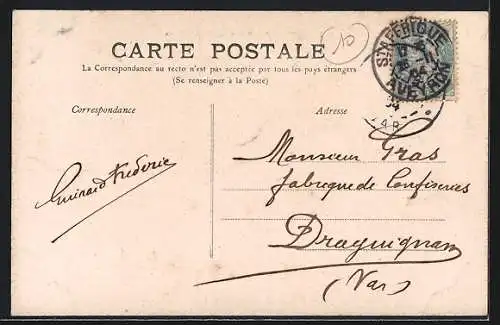 CARTE POSTALE
La Correspondance au recto n'est pas acceptée par tous les pays étrangers
(Se renseigner à la Poste)
Correspondance
Adresse
10
AVEYRON
04
Guinard Frédéric
Monsieur Gras
fabrique de Confiseries
Draguignan
(Var)